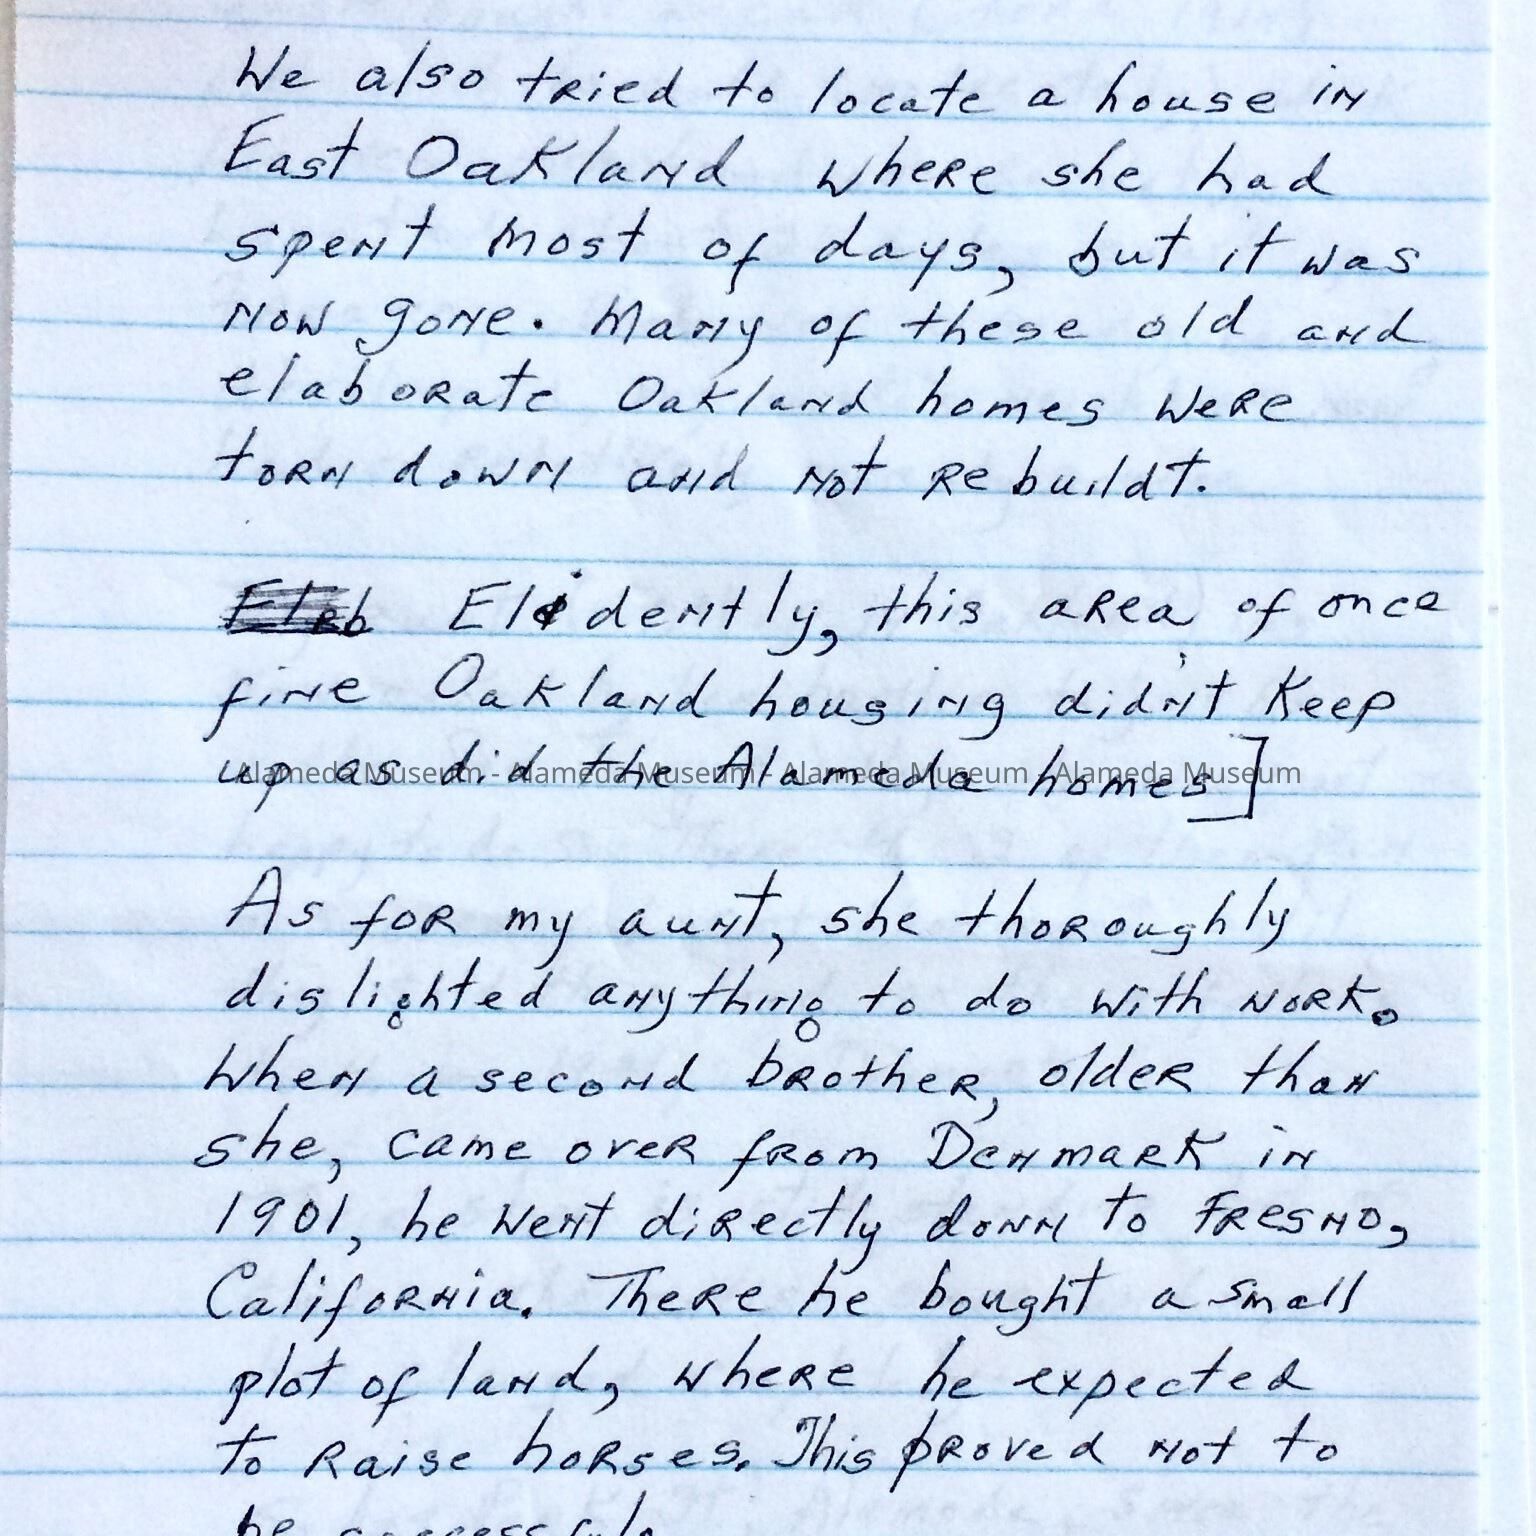 We also tried to locate a house in
East Oakland where she had
spent most of days, but it was
now gone. Many of these old and
elaborate Oakland homes were
torn down and not rebuildt.
Elidently, this area of once
fine Oakland housing didn't keep
up as did the Alameda homes]
Alameda Museum - Alameda Museum - Alameda Museum - Alameda Museum
As for my aunt, she thoroughly
dislighted anything to do with work.
When a second brother, older than
she, came over from Denmark in
1901, he went directly down to Fresno,
California. There he bought a small
plot of land, where he expected
to raise horses. This proved not to
be